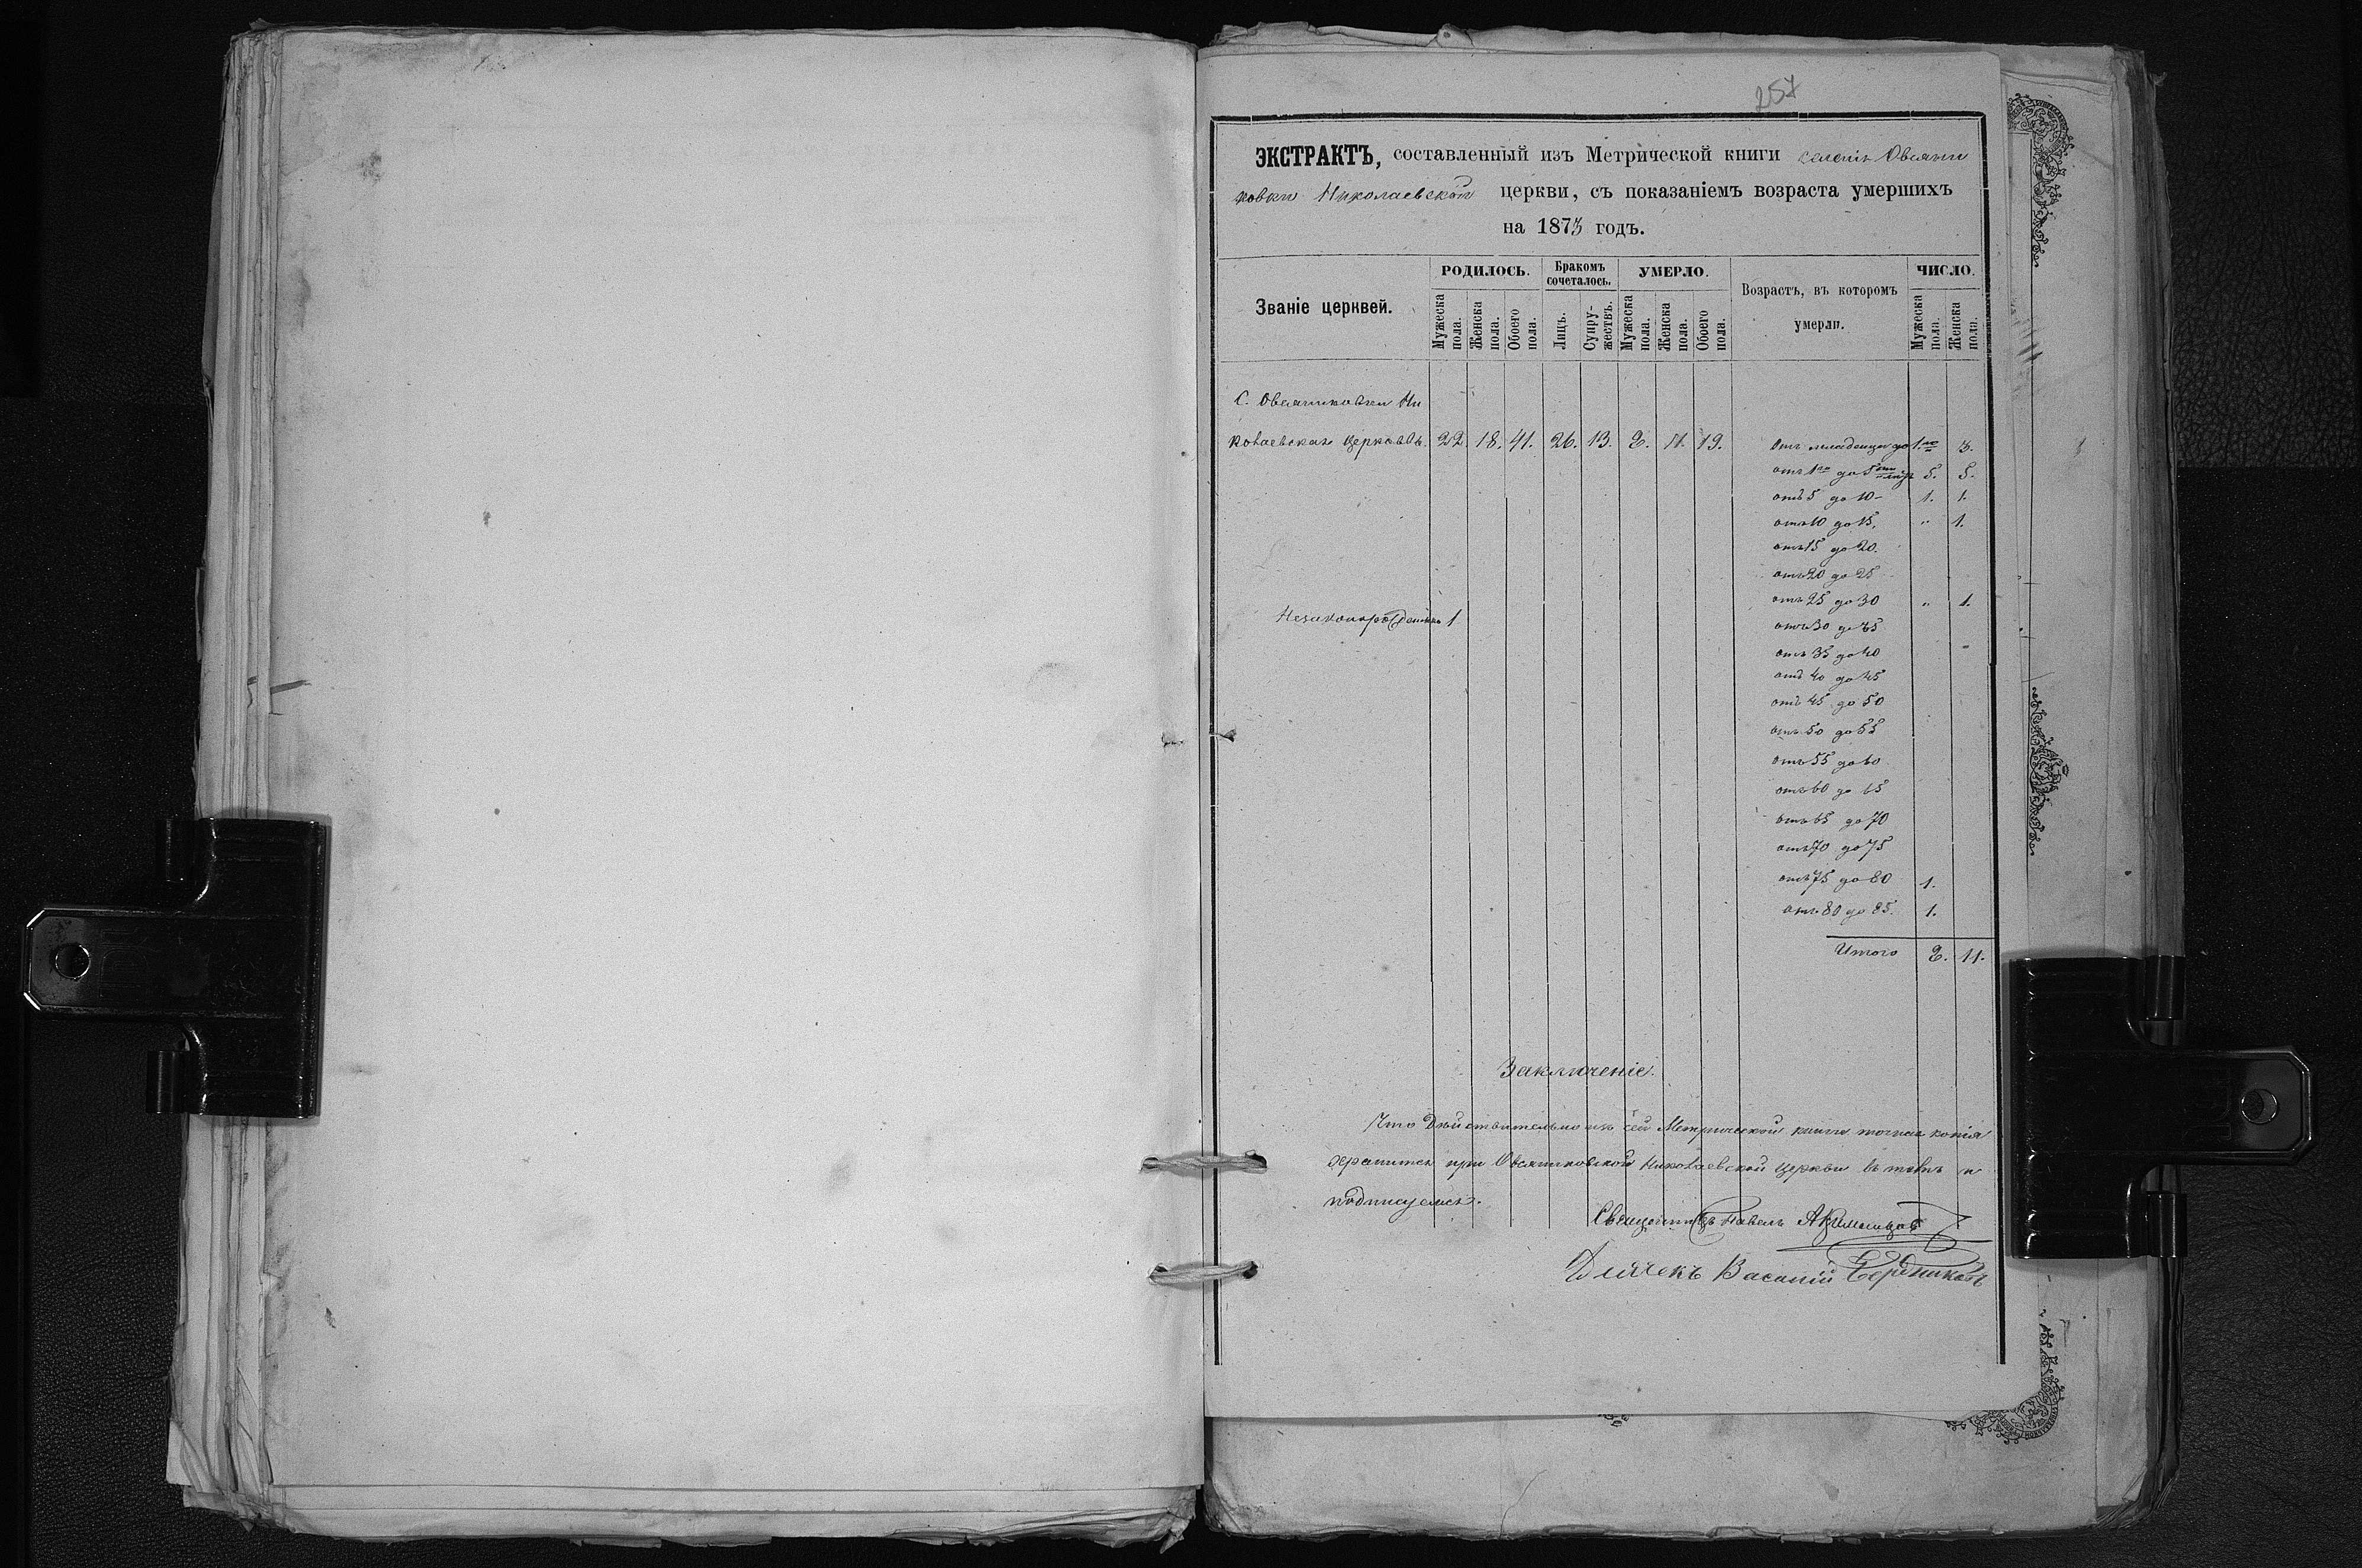 257
ЭКСТРАКТЪ, составленный изъ Метрической книги селенія Овсяни
ковки Николаевской церкви, съ показаніемъ возраста умершихъ
на 1873 годъ.
Званіе церквей.
РОДИЛОСЬ.
Мужеска пола.
Женска пола.
Обоего пола.
Бракомъ сочеталось.
Лицъ.
Супружествъ.
УМЕРЛО.
Мужеска пола.
Женска пола.
Обоего пола.
Возрастъ, въ которомъ умерли.
ЧИСЛО.
Мужеска пола.
Женска пола.
С. Овсяниковки Ни
колаевская церковь. 22 18. 41. 26. 13. 8. 11. 19.
отъ младенца до 1го 3.
отъ 1го до 5ти 5. 5.
отъ 5 до 10 - 1. 1.
отъ 10 до 15. " 1.
отъ 15 до 20.
отъ 20 до 25
отъ 25 до 30 " 1.
Незаконорожденныхъ 1
отъ 30 до 35
отъ 35 до 40
отъ 40 до 45
отъ 45 до 50
отъ 50 до 55
отъ 55 до 60
отъ 60 до 65
отъ 65 до 70
отъ 70 до 75
отъ 75 до 80 1.
отъ 80 до 85. 1.
Итого 8. 11.
Заключеніе.
Что Дѣйствительно изъ сей Метрической книги точная копія
хранится при Овсяниковской Николаевской церкви въ томъ и
подписуемся.
Священникъ Павелъ
Дьячекъ Василій Бердниковъ